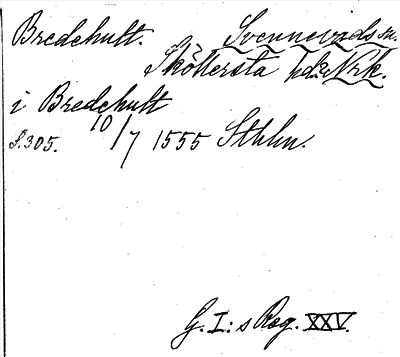 Bredehult. Svennevads sn.
Sköllersta hd. Nrk.
i Bredehult
S.305. 10/7 1555 Sthlm.
G. I:s Reg. XXV.